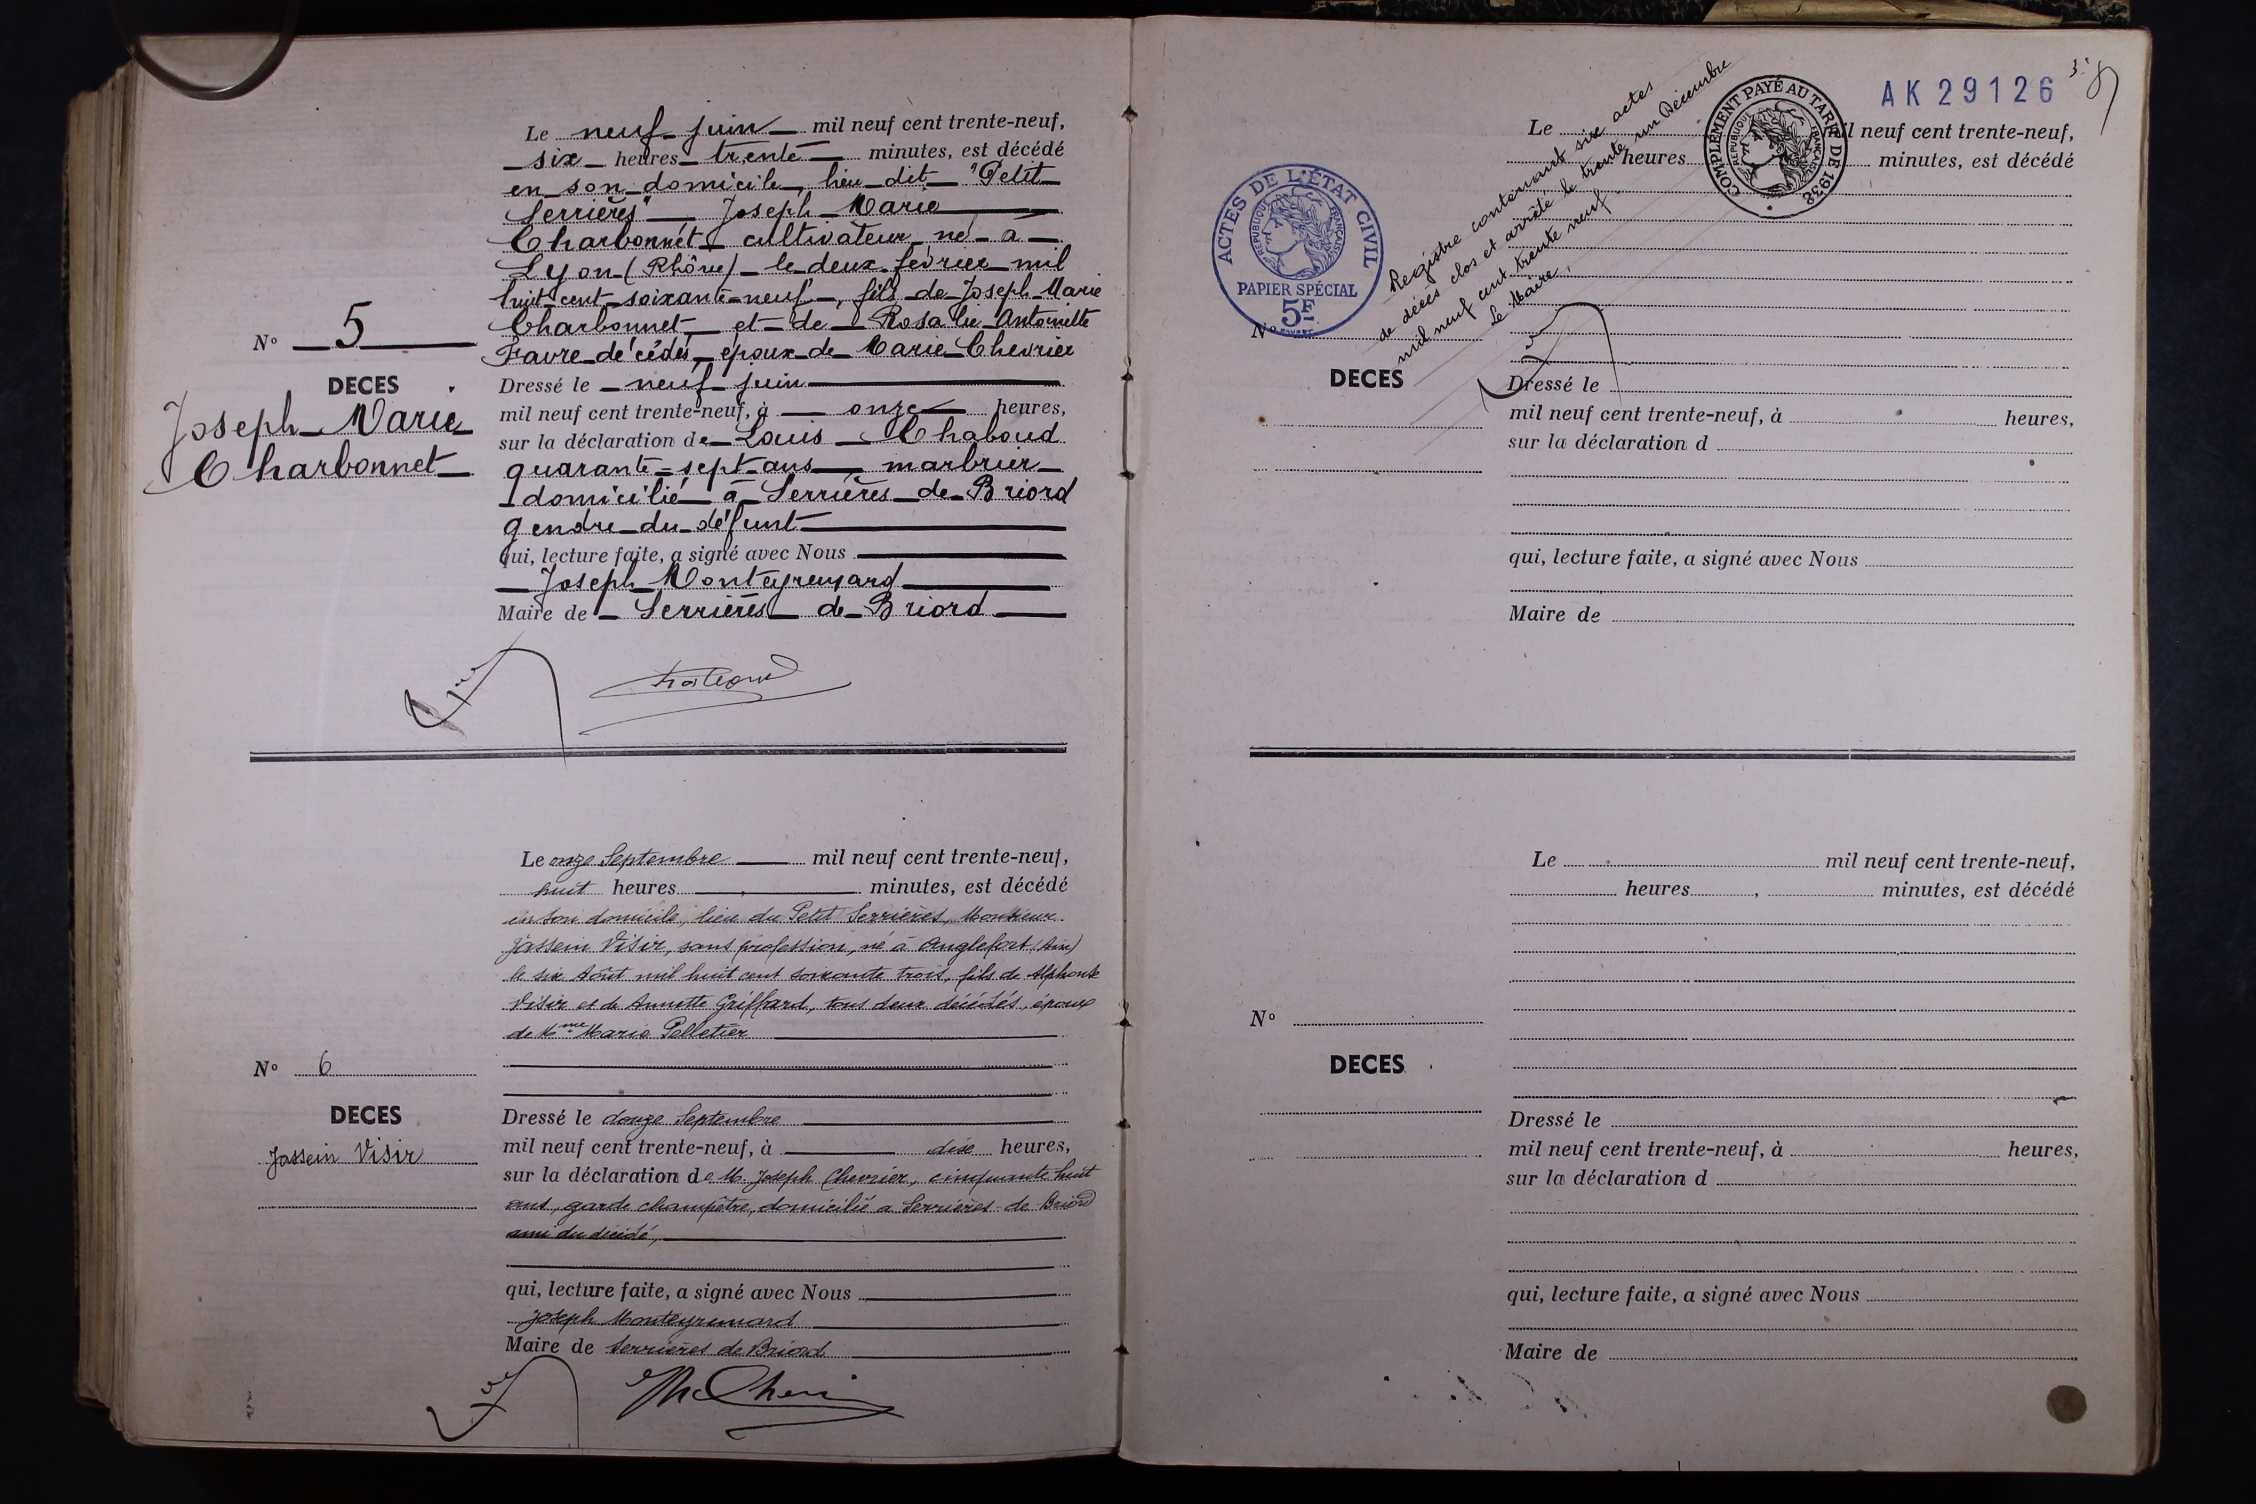 Le neuf juin mil neuf cent trente-neuf,
six heures trente minutes, est décédé
en son domicile, lieu dit "Petit
Serrières" Joseph Marie
Charbonnet cultivateur né à
Lyon (Rhône) le deux février mil
huit cent soixante-neuf, fils de Joseph Marie
Charbonnet et de Rosalie Antoinette
Favre décédés époux de Marie Chevrier
N° 5
DECES
Joseph Marie
Charbonnet
Dressé le neuf juin
mil neuf cent trente-neuf, à onze heures,
sur la déclaration de Louis Chaboud
quarante-sept ans, marbrier
domicilié à Serrières de Briord
gendre du défunt
qui, lecture faite, a signé avec Nous
Joseph Monteyremard
Maire de Serrières de Briord
Le onze Septembre mil neuf cent trente-neuf,
huit heures minutes, est décédé
en son domicile, lieu du Petit Serrières, Monsieur
Jassein Visir, sans profession, né à Anglefort (Ain)
le six Août mil huit cent soixante trois, fils de Alphonse
Visir et de Annette Griffard, tous deux décédés, époux
de Mme Marie Pelletier
N° 6
DECES
Jassein Visir
Dressé le douze Septembre
mil neuf cent trente-neuf, à dix heures,
sur la déclaration de M. Joseph Chevrier, cinquante huit
ans, garde champêtre, domicilié à Serrières de Briord
ami du décédé,
qui, lecture faite, a signé avec Nous
Joseph Monteyremard
Maire de Serrières de Briord
AK 29126
COMPLÉMENT PAYÉ AU TARIF DE 1938
RÉPUBLIQUE FRANÇAISE
ACTES DE L'ÉTAT CIVIL
RÉPUBLIQUE FRANÇAISE
PAPIER SPÉCIAL
5F
Registre contenant six actes
de décès clos et arrêté le trente un Décembre
mil neuf cent trente neuf
Le Maire,
Le mil neuf cent trente-neuf,
heures minutes, est décédé
N°
DECES
Dressé le
mil neuf cent trente-neuf, à heures,
sur la déclaration d
qui, lecture faite, a signé avec Nous
Maire de
Le mil neuf cent trente-neuf,
heures minutes, est décédé
N°
DECES
Dressé le
mil neuf cent trente-neuf, à heures,
sur la déclaration d
qui, lecture faite, a signé avec Nous
Maire de